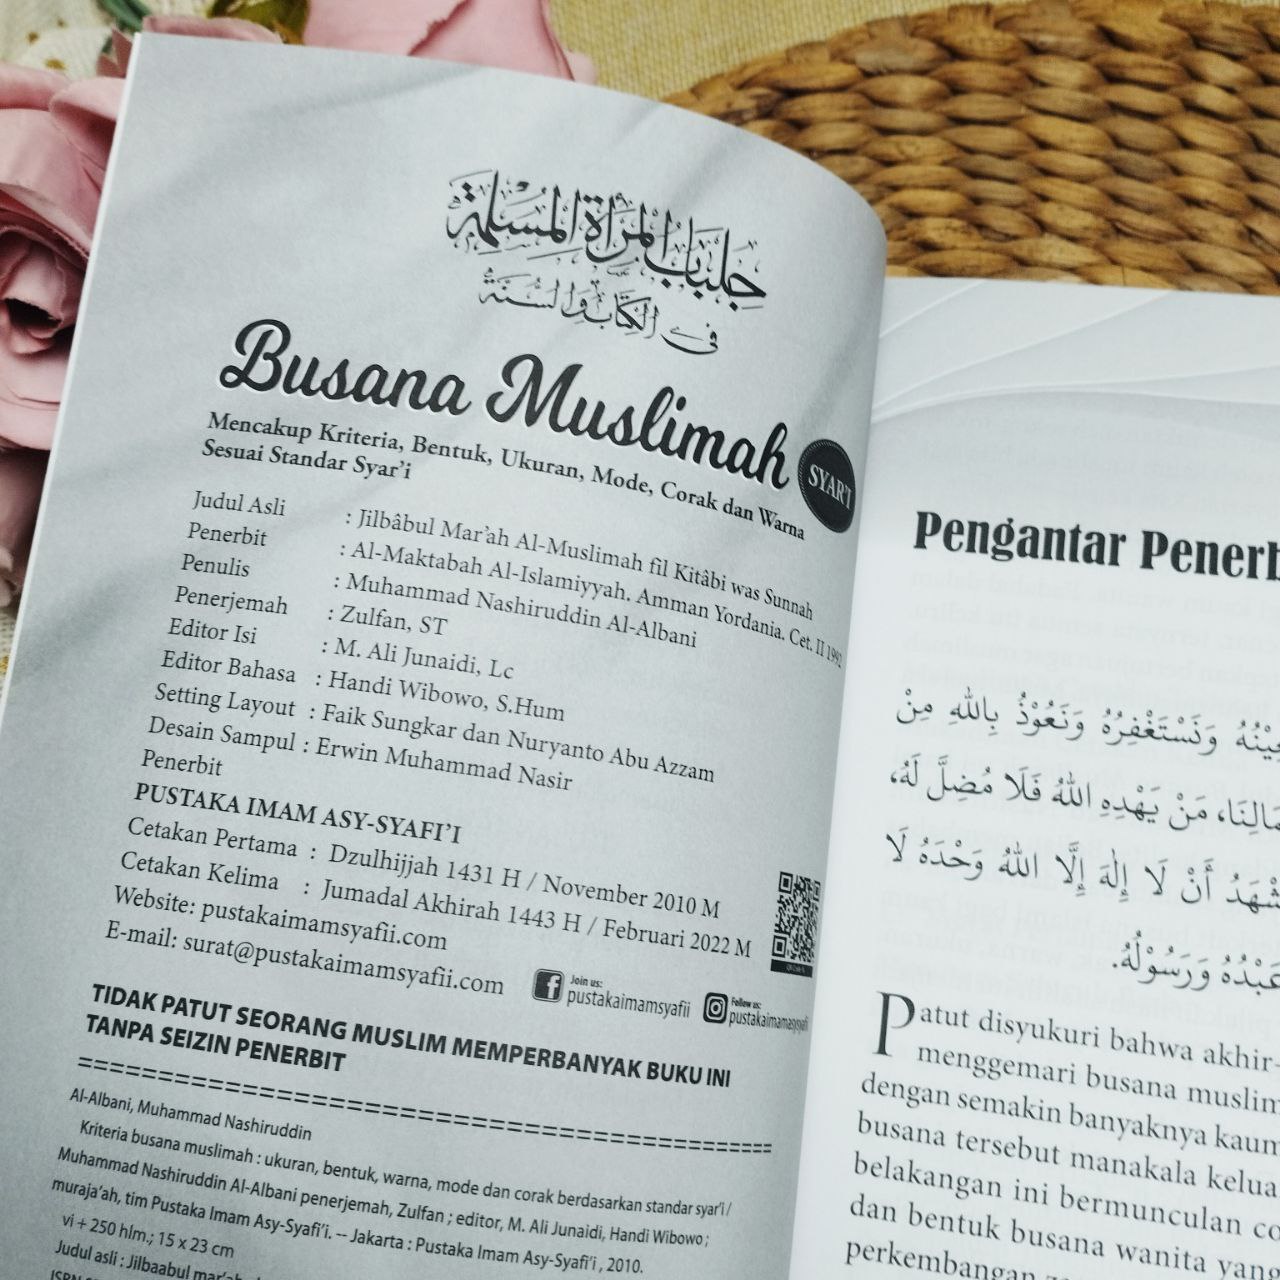 جلباب المرأة المسلمة
في الكتاب والسنة
Busana Muslimah
SYAR'I
Mencakup Kriteria, Bentuk, Ukuran, Mode, Corak dan Warna
Sesuai Standar Syar'i
Judul Asli : Jilbâbul Mar'ah Al-Muslimah fil Kitâbi was Sunnah
Penerbit : Al-Maktabah Al-Islamiyyah. Amman Yordania. Cet. II 1992
Penulis : Muhammad Nashiruddin Al-Albani
Penerjemah : Zulfan, ST
Editor Isi : M. Ali Junaidi, Lc
Editor Bahasa : Handi Wibowo, S.Hum
Setting Layout : Faik Sungkar dan Nuryanto Abu Azzam
Desain Sampul : Erwin Muhammad Nasir
Penerbit
PUSTAKA IMAM ASY-SYAFI'I
Cetakan Pertama : Dzulhijjah 1431 H / November 2010 M
Cetakan Kelima : Jumadal Akhirah 1443 H / Februari 2022 M
Website: pustakaimamsyafii.com
E-mail: surat@pustakaimamsyafii.com
Join us:
pustakaimamsyafii
Follow us:
pustakaimamasysyafii
TIDAK PATUT SEORANG MUSLIM MEMPERBANYAK BUKU INI
TANPA SEIZIN PENERBIT
Al-Albani, Muhammad Nashiruddin
Kriteria busana muslimah : ukuran, bentuk, warna, mode dan corak berdasarkan standar syar'i /
Muhammad Nashiruddin Al-Albani penerjemah, Zulfan ; editor, M. Ali Junaidi, Handi Wibowo ;
muraja'ah, tim Pustaka Imam Asy-Syafi'i. -- Jakarta : Pustaka Imam Asy-Syafi'i , 2010.
vi + 250 hlm.; 15 x 23 cm
Judul asli : Jilbaabul mar'ah
ISBN
Pengantar Penerb
وَنَسْتَغْفِرُهُ وَنَعُوْذُ بِاللهِ مِنْ
مَنْ يَهْدِهِ اللهُ فَلَا مُضِلَّ لَهُ،
أَنْ لَا إِلٰهَ إِلَّا اللهُ وَحْدَهُ لَا
عَبْدُهُ وَرَسُوْلُهُ.
Patut disyukuri bahwa akhir-
menggemari busana muslim
dengan semakin banyaknya kaum
busana tersebut manakala kelua
belakangan ini bermunculan co
dan bentuk busana wanita yang
perkembangan